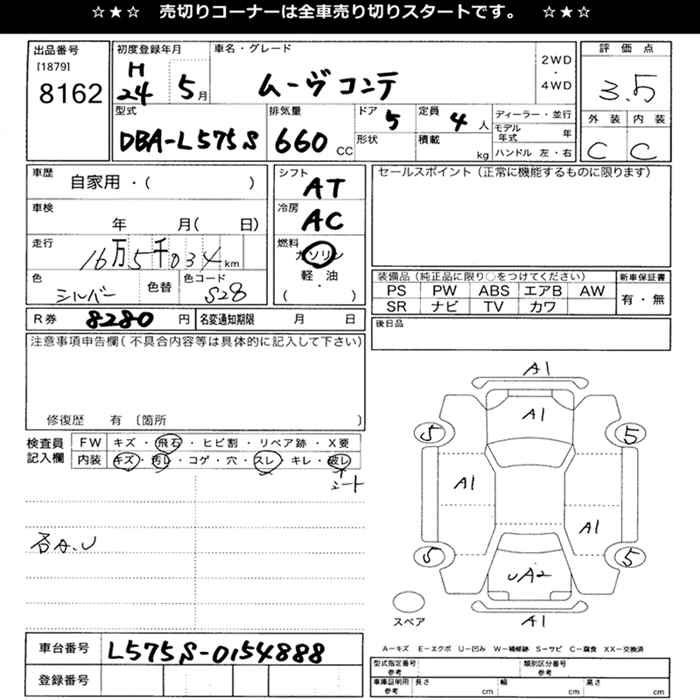 ☆★☆ 売切りコーナーは全車売り切りスタートです。 ☆★☆
出品番号 [1879] 8162
初度登録年月 H24 5月
車名・グレード ムーヴコンテ
2WD・4WD
評価点 3.5
外装 C 内装 C
型式 DBA-L575S
排気量 660 CC
ドア 5
形状
定員 4人
積載 kg
ディーラー・並行
モデル年式 年
ハンドル 左・右
車歴 自家用・( )
車検 年 月( 日)
走行 16万5千034km
色 シルバー 色替 色コード S28
シフト AT
冷房 AC
燃料 ガソリン・軽油 ( )
セールスポイント(正常に機能するものに限ります)
装備品(純正品に限り○をつけてください)
PS PW ABS エアB AW
SR ナビ TV カワ
新車保証書 有・無
R券 8280円 名変通知期限 月 日
後日品
注意事項申告欄(不具合内容等は具体的に記入して下さい)
修復歴 有 〔箇所 〕
検査員記入欄
FW キズ・飛石・ヒビ割・リペア跡・X要
内装 キズ・汚レ・コゲ・穴・スレ・キレ・破レ
シート
各A.U
A1
A1
5 5
A1
A1
5 5
UA2
A1
スペア
A-キズ E-エクボ U-凹み W-補修跡 S-サビ C-腐食 XX-交換済
車台番号 L575S-0154888
登録番号
型式指定番号 参考 類別区分番号 参考
車庫証明用 参考 長さ cm 幅 cm 高さ cm